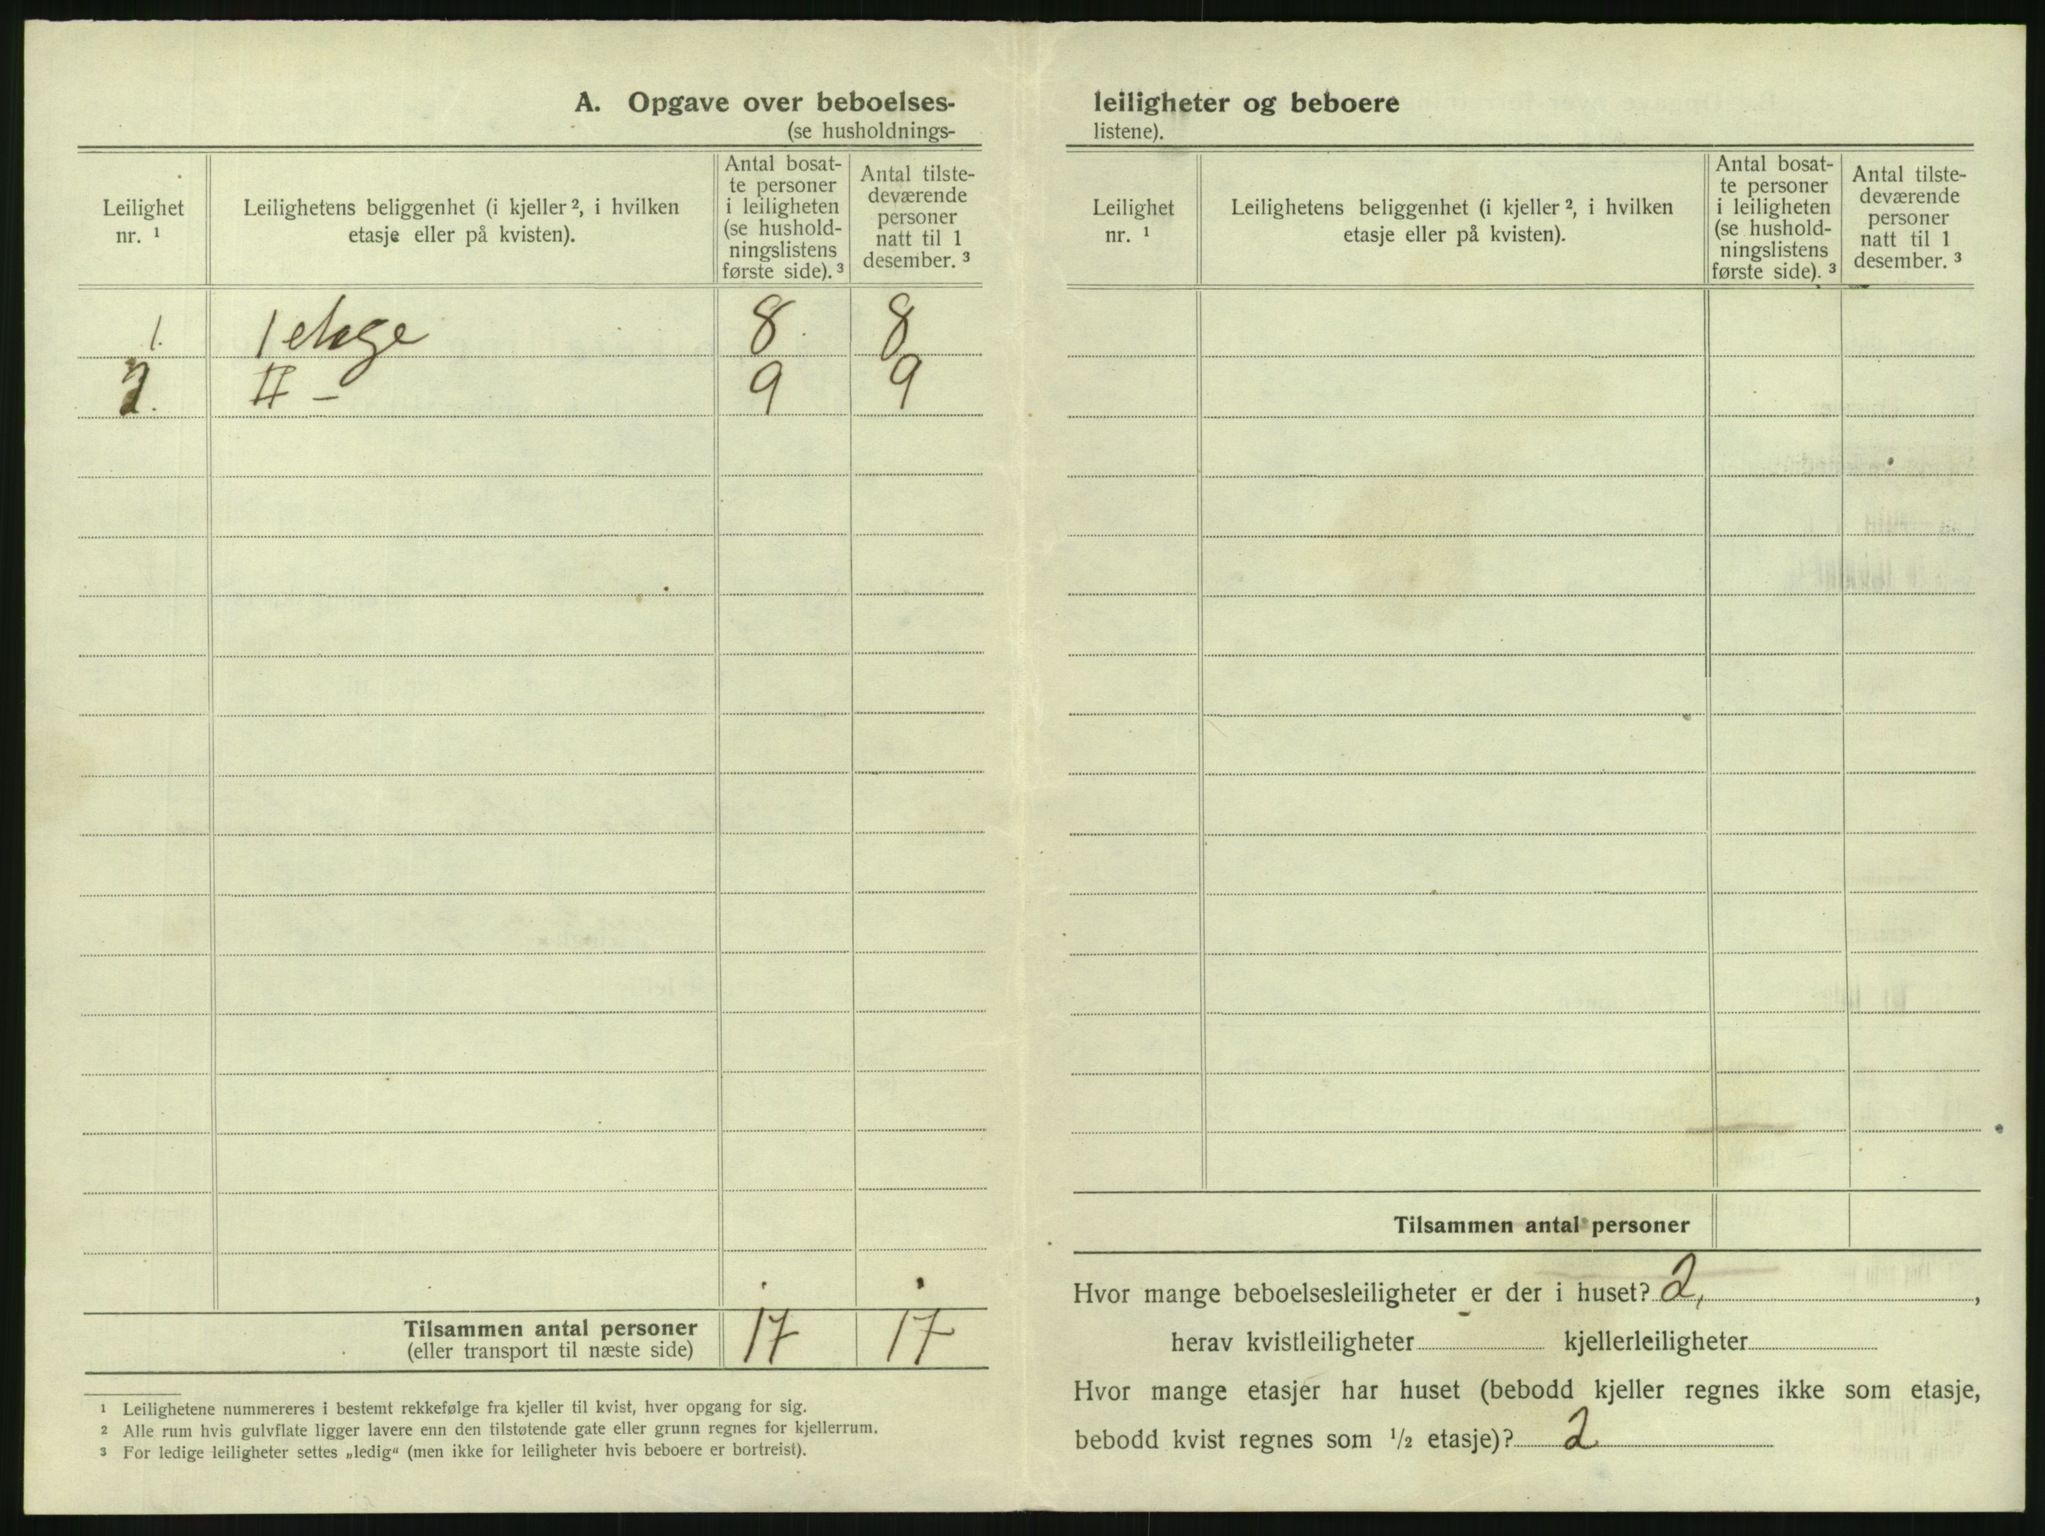 A. Opgave over beboelses-
(se husholdnings-
Leilighet
nr. ¹
Leilighetens beliggenhet (i kjeller ², i hvilken
etasje eller på kvisten).
Antal bosat-
te personer
i leiligheten
(se hushold-
ningslistens
første side). ³
Antal tilste-
deværende
personer
natt til 1
desember. ³
1. 1 etage 8. 8
2. II — 9 9
Tilsammen antal personer 17 17
(eller transport til næste side)
¹ Leilighetene nummereres i bestemt rekkefølge fra kjeller til kvist, hver opgang for sig.
² Alle rum hvis gulvflate ligger lavere enn den tilstøtende gate eller grunn regnes for kjellerrum.
³ For ledige leiligheter settes „ledig“ (men ikke for leiligheter hvis beboere er bortreist).
leiligheter og beboere
listene).
Leilighet
nr. ¹
Leilighetens beliggenhet (i kjeller ², i hvilken
etasje eller på kvisten).
Antal bosat-
te personer
i leiligheten
(se hushold-
ningslistens
første side). ³
Antal tilste-
deværende
personer
natt til 1
desember. ³
Tilsammen antal personer
Hvor mange beboelsesleiligheter er der i huset? 2,
herav kvistleiligheter kjellerleiligheter
Hvor mange etasjer har huset (bebodd kjeller regnes ikke som etasje,
bebodd kvist regnes som ½ etasje)? 2